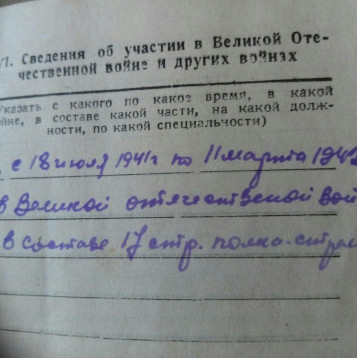 VI. Сведения об участии в Великой Оте-
чественной войне и других войнах
(Указать с какого по какое время, в какой
войне, в составе какой части, на какой долж-
ности, по какой специальности)
с 18 июля 1941г по 11 марта 1942
в Великой отечественой вой
в составе 17 стр. полка-стрел